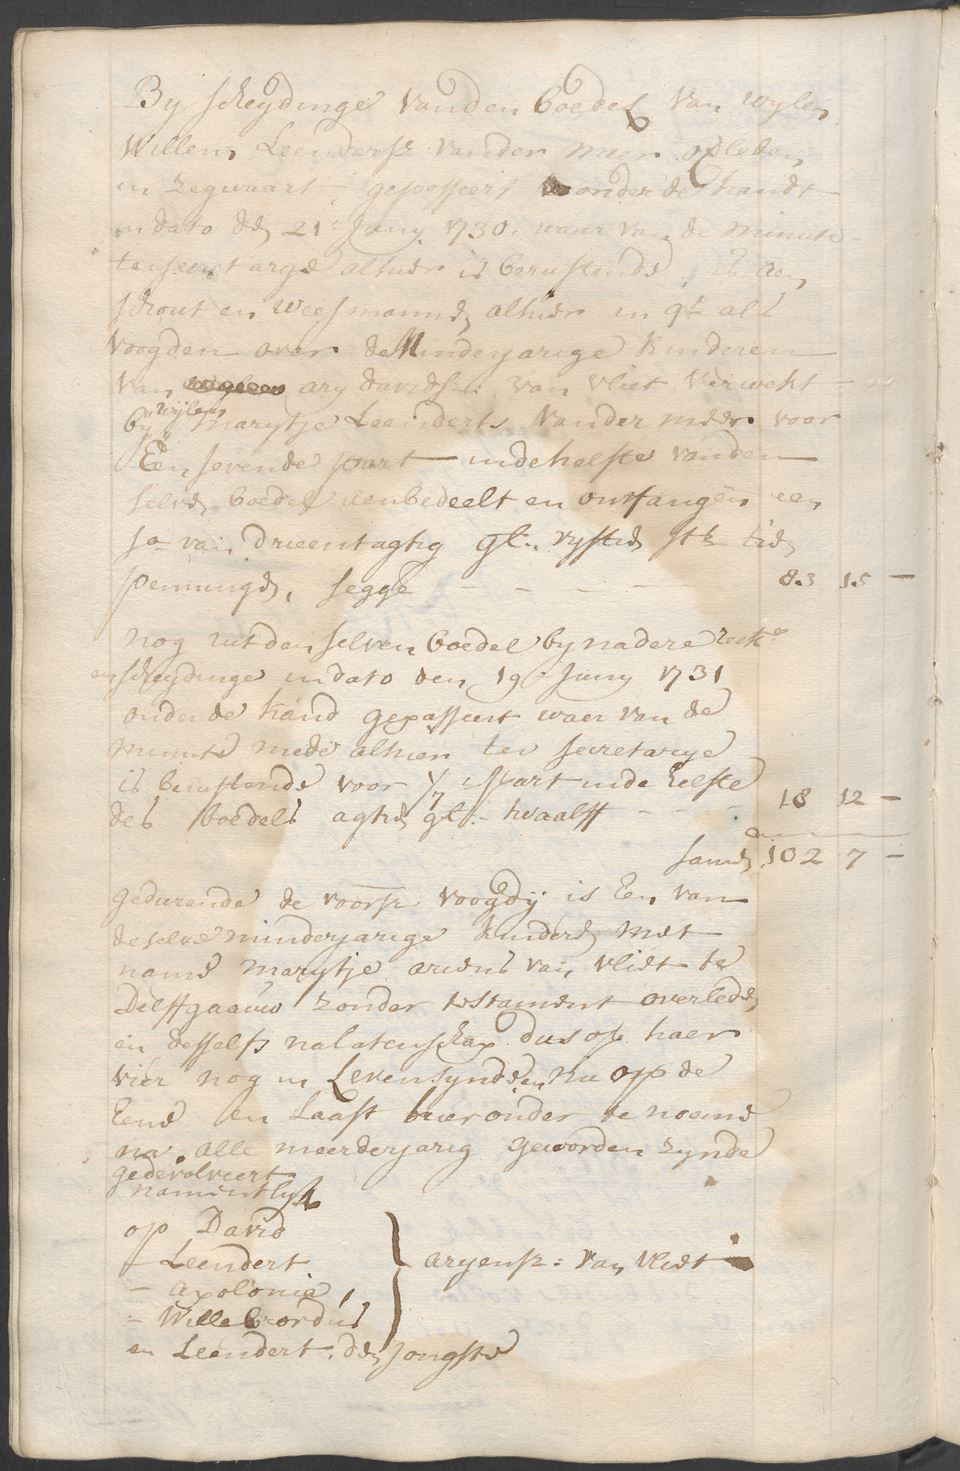 By scheydinge vanden boedel van wylen
Willem Leendersz vander meer overleden
in zegwaart gepasseert onder de handt
in dato den 21e Juny 1730. waar van de minute
ter secretarye alhier is berustende is aen
schout en weesmannen alhier in qt als
voogden over de Minderjarige kinderen
van ary davidsz: van vliet verwekt
by wijlen marytje Leenderts vander meer voor
Een sevende part inde helfte vanden
selven boedel aenbedeelt en ontfangen een
so van drieentagtig gl. vyftien st
penninge, segge - - - - 83 15 -
nog uit den selven boedel by nadere reeke
en scheydinge in dato den 19e Juny 1731
onder de hand gepasseert waer van de
minute mede alhier ter secretarye
is berustende voor 1/7 part inde helfte
des boedels agtien gl: twaalff - - - 18 12 -
samen 102 7 -
gedurende de voorsz voogdij is Een van
deselve minderjarige kinderen met
name marytje ariens van vliet te
Delffgaauw zonder testament overleden
en desselfs nalatenschap dus op haer
vier nog in Levensynde en nu op de
Eene en Laast hier onder te noeme
na alle meerderjarig geworden zynde
gedevolveert
namentlyk
op David
- Leendert } aryensz: van vliet
- apolonia,
- Willebrordus
en Leendert den jongste